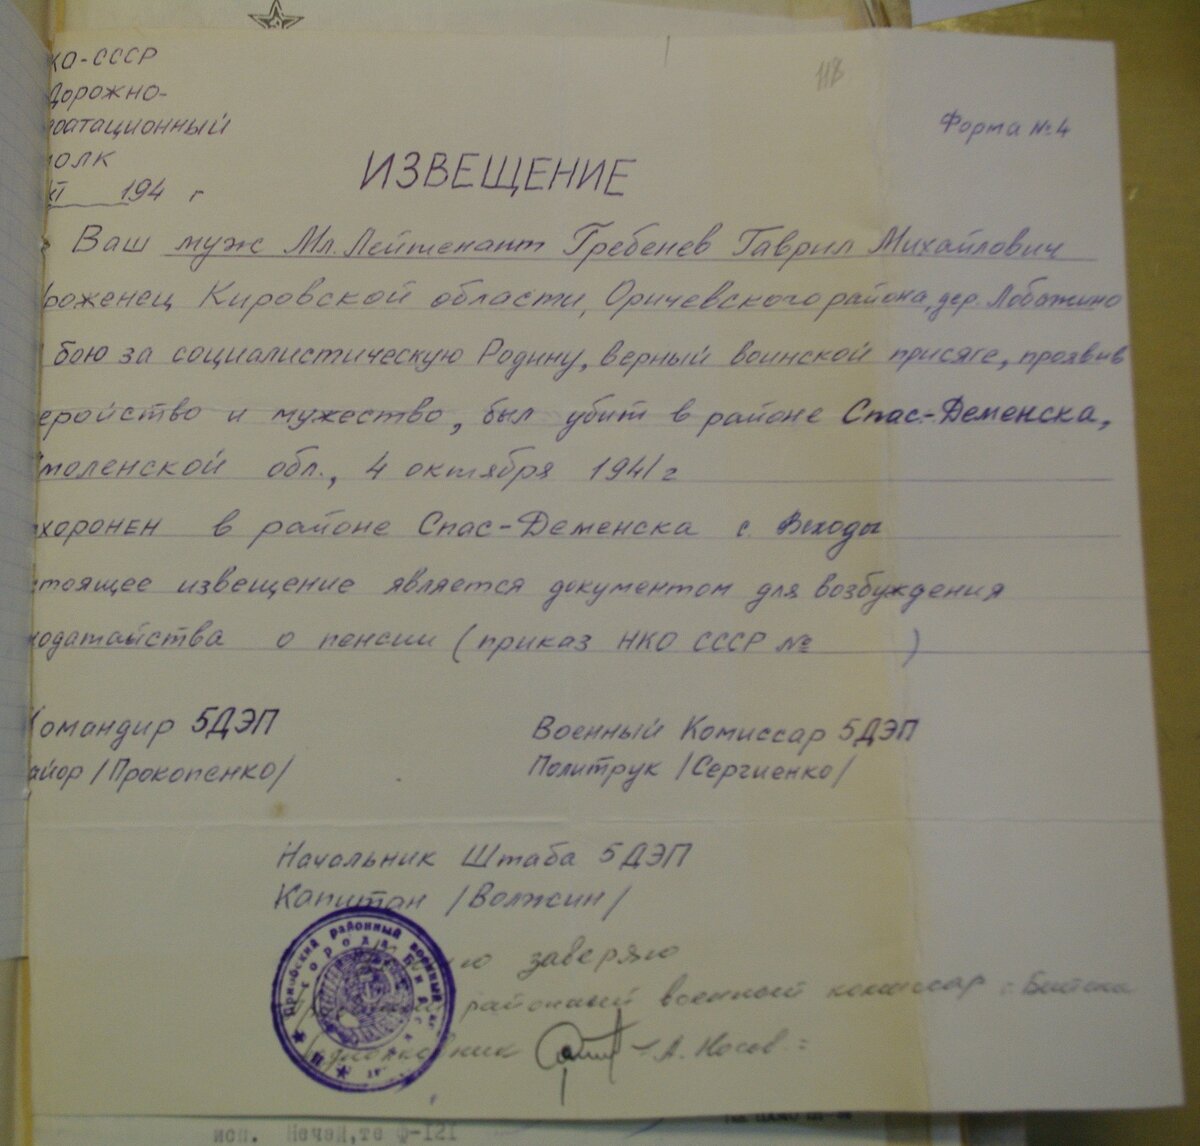 КО-СССР
Дорожно-
оатационный
полк
XI 194 г
118
Форма №4
ИЗВЕЩЕНИЕ
Ваш муж Мл. Лейтенант Гребенев Гаврил Михайлович
роженец Кировской области, Оричевского района, дер. Лобажино
бою за социалистическую Родину, верный воинской присяге, проявив
еройство и мужество, был убит в районе Спас-Деменска,
моленской обл., 4 октября 1941 г
хоронен в районе Спас-Деменска с. Выходы
стоящее извещение является документом для возбуждения
ходатайства о пенсии (приказ НКО СССР № )
Командир 5ДЭП
айор /Прокопенко/
Военный Комиссар 5ДЭП
Политрук /Сергиенко/
Начальник Штаба 5ДЭП
Капитан /Волжин/
заверяю
районный военный комиссар г. Бийска
А. Носов
районный военный
города Бийска
исп. Нечеп, те Ф-121